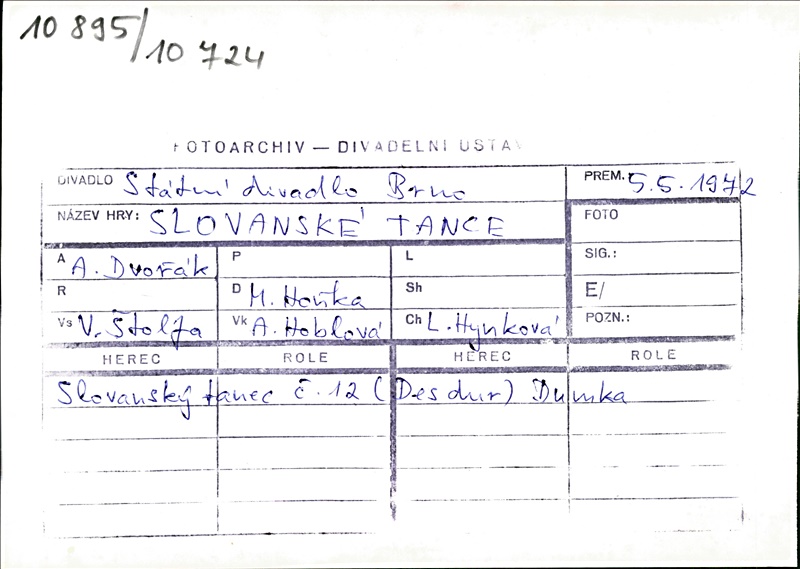 10 895/10 724
FOTOARCHIV — DIVADELNÍ ÚSTAV
DIVADLO Státní divadlo Brno PREM. 5.5.1972
NÁZEV HRY: SLOVANSKÉ TANCE FOTO
A A. Dvořák P L SIG.:
R D M. Hoňka Sh E/
Vs V. Štolfa Vk A. Hoblová Ch L. Hynková POZN.:
HEREC ROLE HEREC ROLE
Slovanský tanec č. 12 (Des dur) Dumka